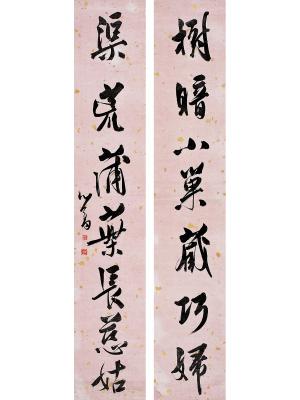 樹暗小巢藏巧婦
渠荒蒲葉長慈姑
心畬